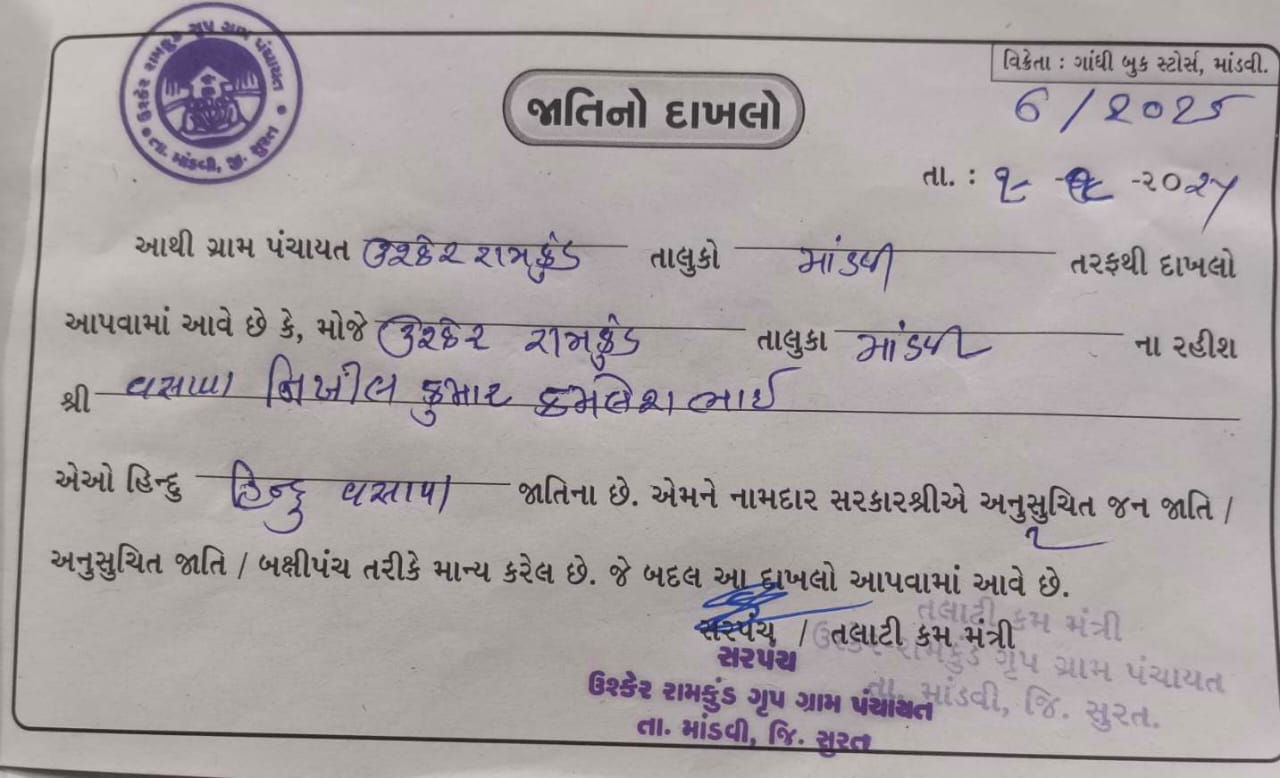 ઉશ્કેર રામકુંડ ગૃપ ગ્રામ પંચાયત
તા. માંડવી, જી. સુરત
વિક્રેતા : ગાંધી બુક સ્ટોર્સ, માંડવી.
જાતિનો દાખલો
6/૨૦૨૫
તા. : ૧૮ -૨૦૨૫
આથી ગ્રામ પંચાયત ઉશ્કેર રામકુંડ તાલુકો માંડવી તરફથી દાખલો
આપવામાં આવે છે કે, મોજે ઉશ્કેર રામકુંડ તાલુકા માંડવી ના રહીશ
શ્રી વસાવા નિખીલ કુમાર કમલેશભાઈ
એઓ હિન્દુ હિન્દુ વસાવા જાતિના છે. એમને નામદાર સરકારશ્રીએ અનુસુચિત જન જાતિ /
અનુસુચિત જાતિ / બક્ષીપંચ તરીકે માન્ય કરેલ છે. જે બદલ આ દાખલો આપવામાં આવે છે.
સરપંચ / તલાટી કમ મંત્રી
તલાટી કમ મંત્રી
ઉશ્કેર-રામકુંડ ગૃપ ગ્રામ પંચાયત
તા. માંડવી, જિ. સુરત.
સરપંચ
ઉશ્કેર રામકુંડ ગૃપ ગ્રામ પંચાયત
તા. માંડવી, જિ. સુરત